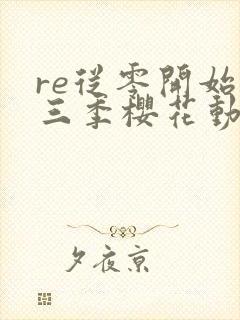 re從零開始
三季櫻花動
夕夜京